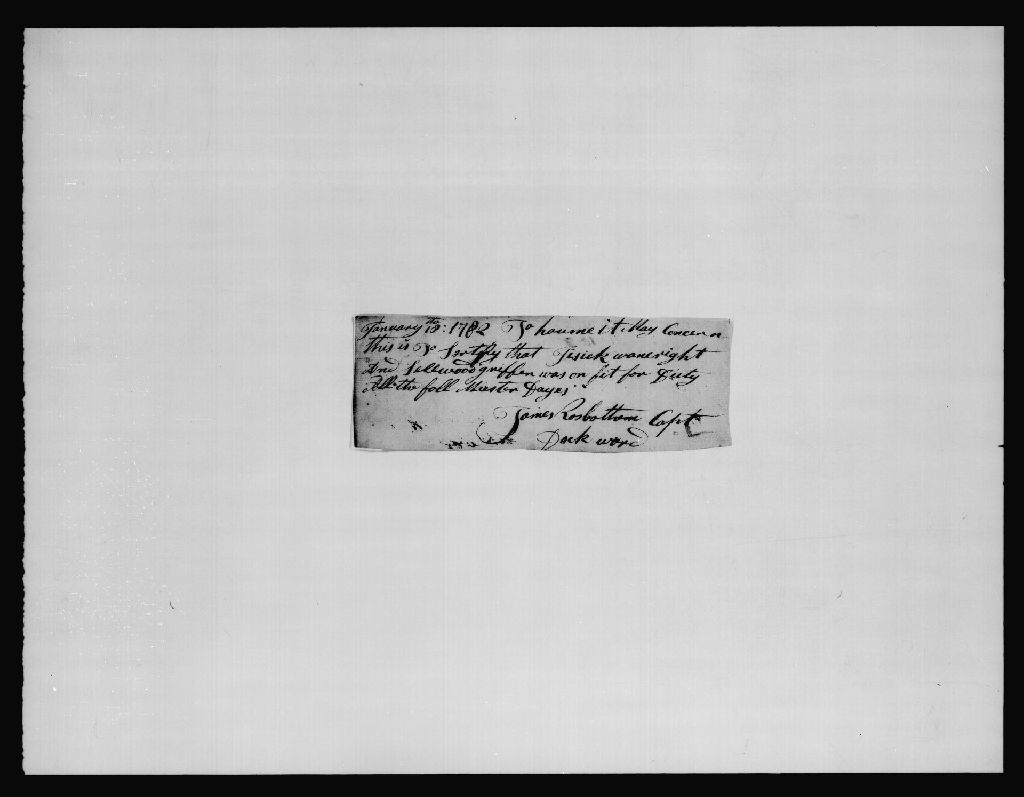 January th 10: 1782 To houme it May Concern
this is To Sertfiy that Jisick waneright
And Sellwood griffen was on fit for Duty
All the fall Muster Dayes
James Rosbottom Capt
Dock word